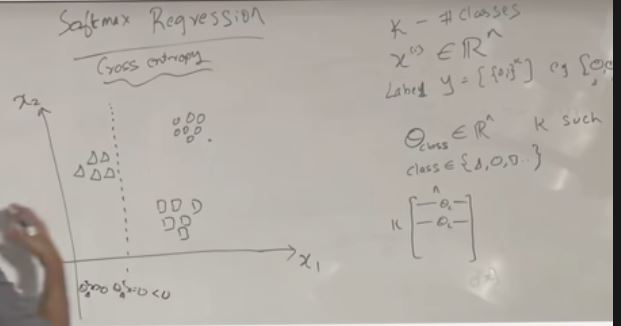 Softmax Regression
Cross entropy
x₂
x₁
K - # classes
x⁽ⁱ⁾ ∈ ℝⁿ
Label y = [{0,1}ᴷ] eg [0,0
θ_class ∈ ℝⁿ K such
class ∈ {△, O, □..}
n
K [— θ₁ —
— θ₂ —]